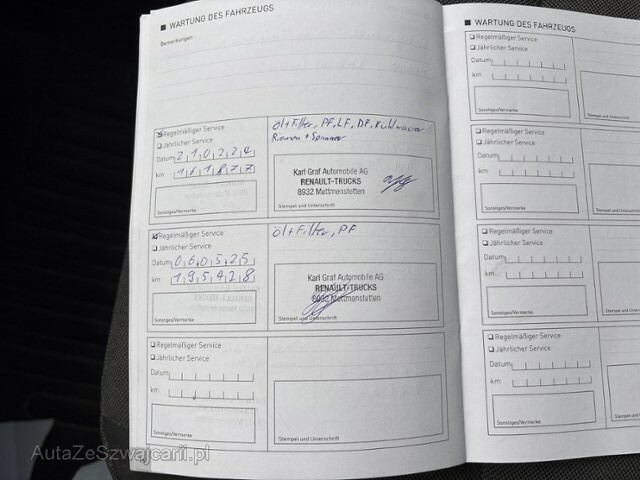 WARTUNG DES FAHRZEUGS
Bemerkungen
Regelmäßiger Service
Jährlicher Service
Datum 2 1 0 2 2 4
km 1 6 1 8 7 7
Sonstiges/Vermerke
Öl+Filter, PF, LF, DF, Kuhlwasser
Riemen + Spanner
Karl Graf Automobile AG
RENAULT-TRUCKS
8932 Mettmenstetten
Stempel und Unterschrift
Regelmäßiger Service
Jährlicher Service
Datum 0 6 0 5 2 5
km 1 9 5 4 2 8
Sonstiges/Vermerke
Öl+Filter, PF
Karl Graf Automobile AG
RENAULT-TRUCKS
8932 Mettmenstetten
Stempel und Unterschrift
Regelmäßiger Service
Jährlicher Service
Datum
km
Sonstiges/Vermerke
Stempel und Unterschrift
WARTUNG DES FAHRZEUGS
Regelmäßiger Service
Jährlicher Service
Datum
km
Sonstiges/Vermerke
Regelmäßiger Service
Jährlicher Service
Datum
km
Sonstiges/Vermerke
Regelmäßiger Service
Jährlicher Service
Datum
km
Sonstiges/Vermerke
Regelmäßiger Service
Jährlicher Service
Datum
km
Sonstiges/Vermerke
AutaZeSzwajcarii.pl